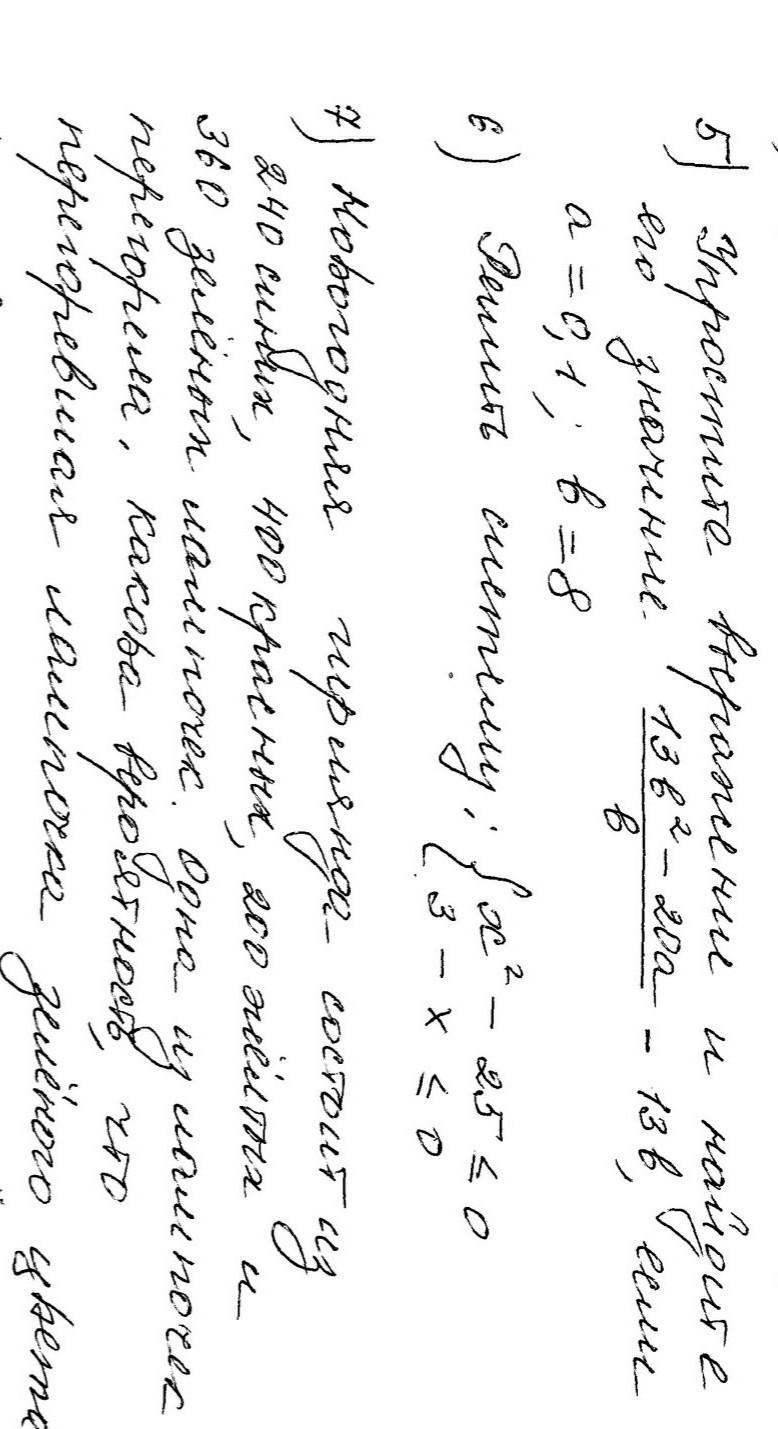 5) Упростите выражение и найдите
его значение. \frac{13b^2 - 20a}{b} - 13b, если
a = 0,1; b = 8
6) Решить систему: { x^2 - 25 ≤ 0
3 - x ≤ 0
7) Новогодняя гирлянда состоит из
240 синих, 400 красных, 200 жёлтых и
360 зелёных лампочек. Одна из лампочек
перегорела. какова вероятность, что
перегоревшая лампочка зелёного цвета